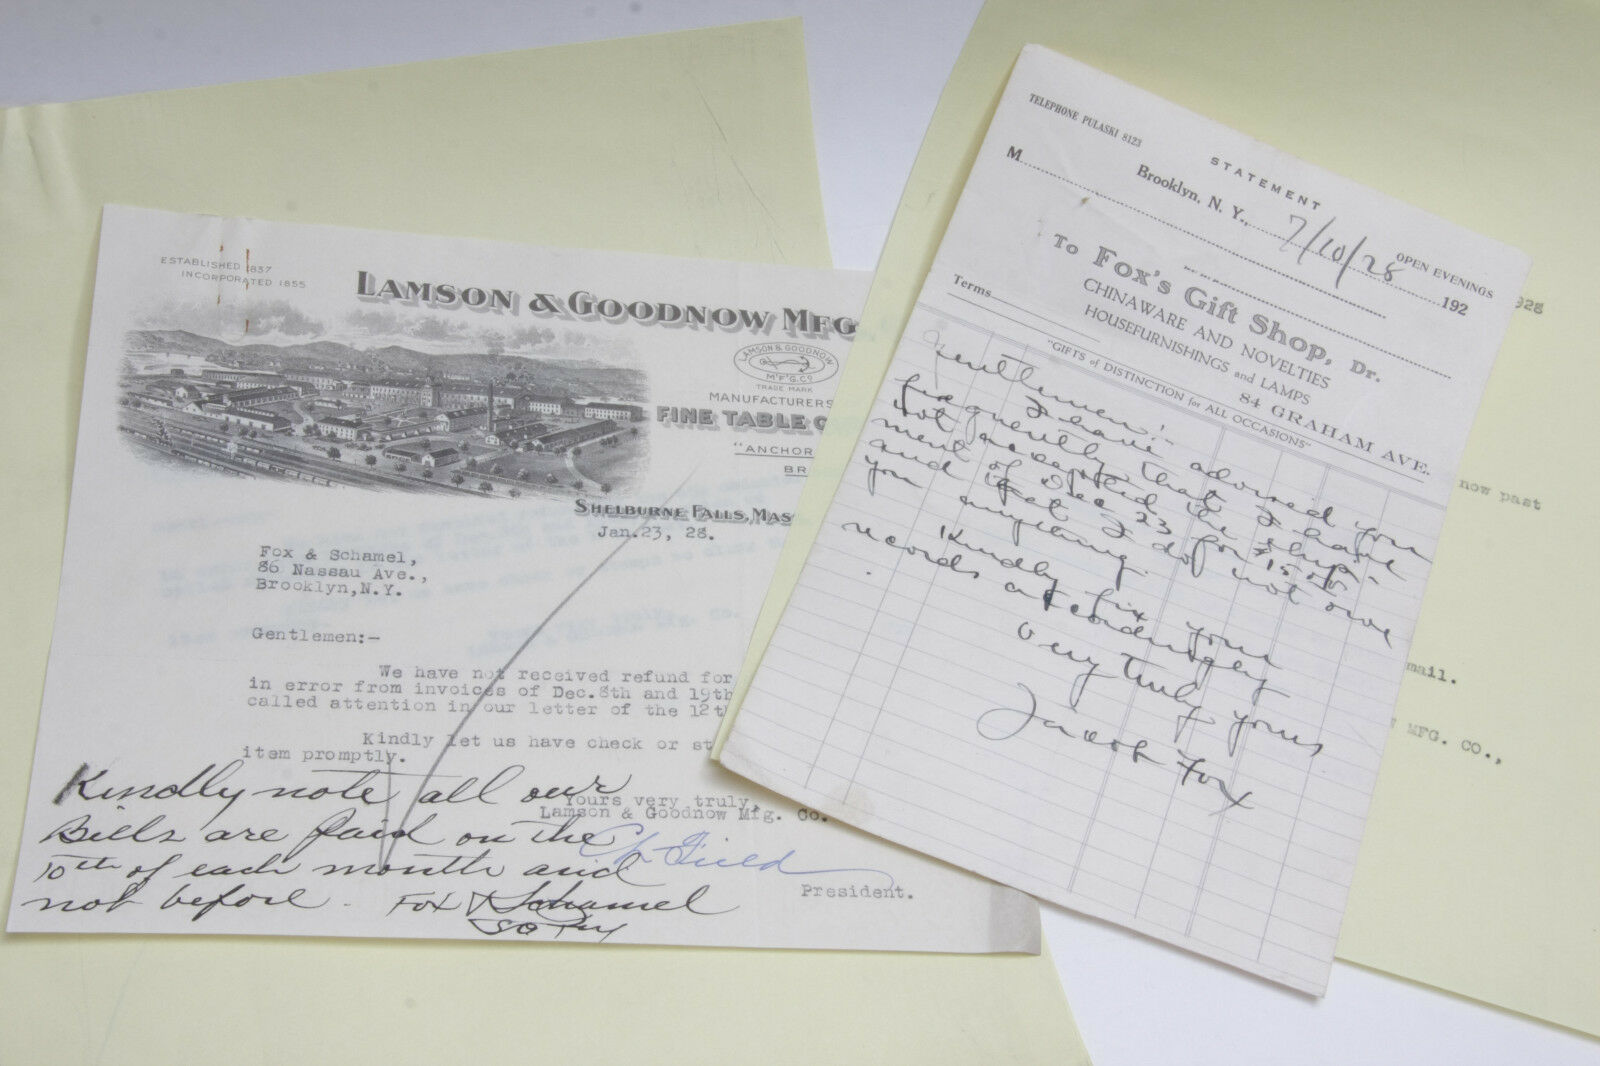 ESTABLISHED 1837
INCORPORATED 1855
LAMSON & GOODNOW MFG
LAMSON & GOODNOW
M'F'G. CO
TRADE MARK
MANUFACTURERS
FINE TABLE C
"ANCHOR
BR
SHELBURNE FALLS, MAS
Jan.23, 28.
Fox & Schamel,
86 Nassau Ave.,
Brooklyn,N.Y.
Gentlemen:-
We have not received refund for
in error from invoices of Dec.8th and 19th
called attention in our letter of the 12th
Kindly let us have check or st
item promptly.
Yours very truly,
Lamson & Goodnow Mfg. Co.
Field
President.
Kindly note all our
Bills are paid on the
10th of each month and
not before. Fox & Schamel
TELEPHONE PULASKI 8123
STATEMENT
Brooklyn, N. Y., 7/10/28 192
OPEN EVENINGS
M
To Fox's Gift Shop, Dr.
CHINAWARE AND NOVELTIES
HOUSEFURNISHINGS and LAMPS
Terms
84 GRAHAM AVE.
"GIFTS of DISTINCTION for ALL OCCASIONS"
Gentlemen:-
I have advised you
frequently that I have
not accepted the ship-
ment of Dec 23 for $15.00
and that I do not owe
you anything.
Kindly fix your
records accordingly
Very truly yours
Jacob Fox
928
now past
mail.
MFG. CO.,